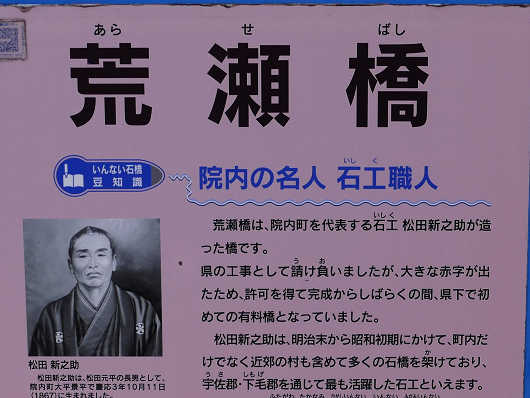 あら せ ばし
荒瀬橋
いんない石橋
豆知識
いし く
院内の名人 石工職人
いしく
荒瀬橋は、院内町を代表する石工 松田新之助が造
った橋です。
う お
県の工事として請け負いましたが、大きな赤字が出
たため、許可を得て完成からしばらくの間、県下で初
めての有料橋となっていました。
松田新之助は、明治末から昭和初期にかけて、町内だ
か
けでなく近郊の村も含めて多くの石橋を架けており、
うさ しもげ
宇佐郡・下毛郡を通じて最も活躍した石工といえます。
松田 新之助
松田新之助は、松田元平の長男として、
院内町大平景平で慶応3年10月11日
(1867)に生まれました。